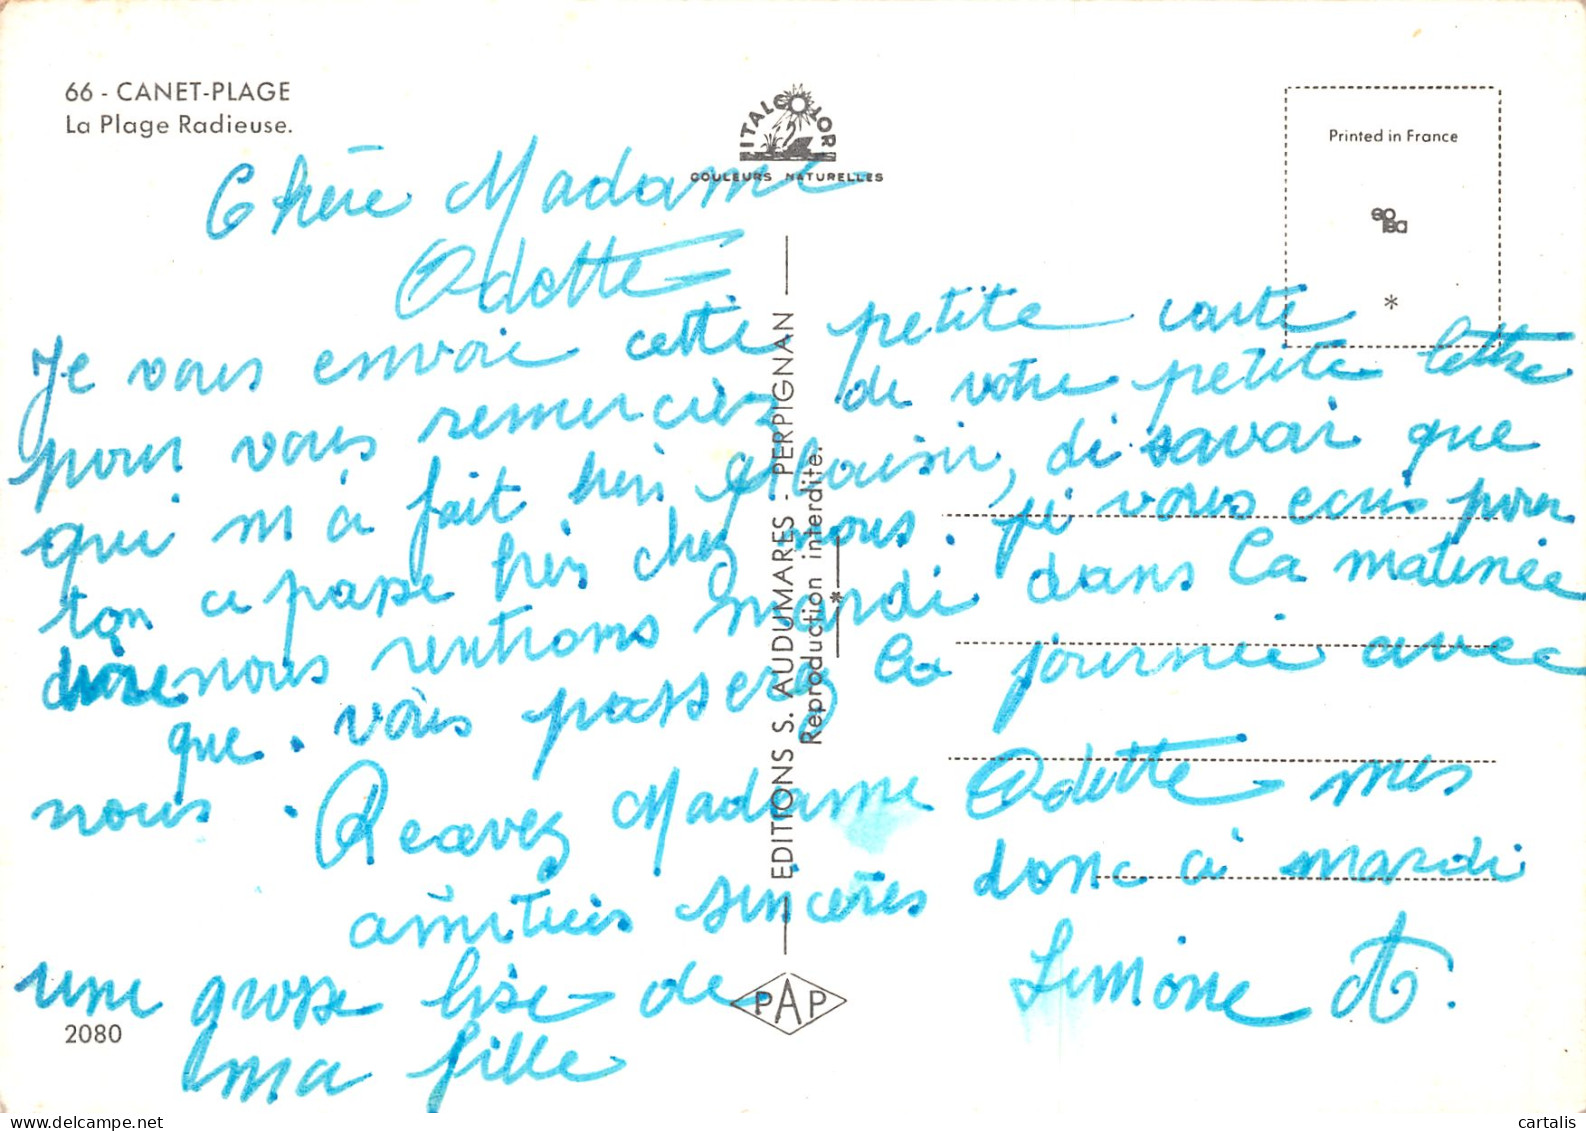 66 - CANET-PLAGE
La Plage Radieuse.
ITALCOLOR
COULEURS NATURELLES
Printed in France
*
Chère Madame
Odette
Je vous envoie cette petite carte
pour vous remerciez de votre petite lettre
qui m'a fait très plaisir, di savoir que
tou ce passe très chez nous. je vous ecris pour
dire nous rentrons mardi dans la matinée
que vous passerez la journée avec
nous. Recevez Madame Odette mes
amitiés sincères donc à mardi
une grosse bise de Simone A.
ma fille
EDITIONS S. AUDUMARES - PERPIGNAN
Reproduction interdite.
PAP
2080
delcampe.net
cartalis